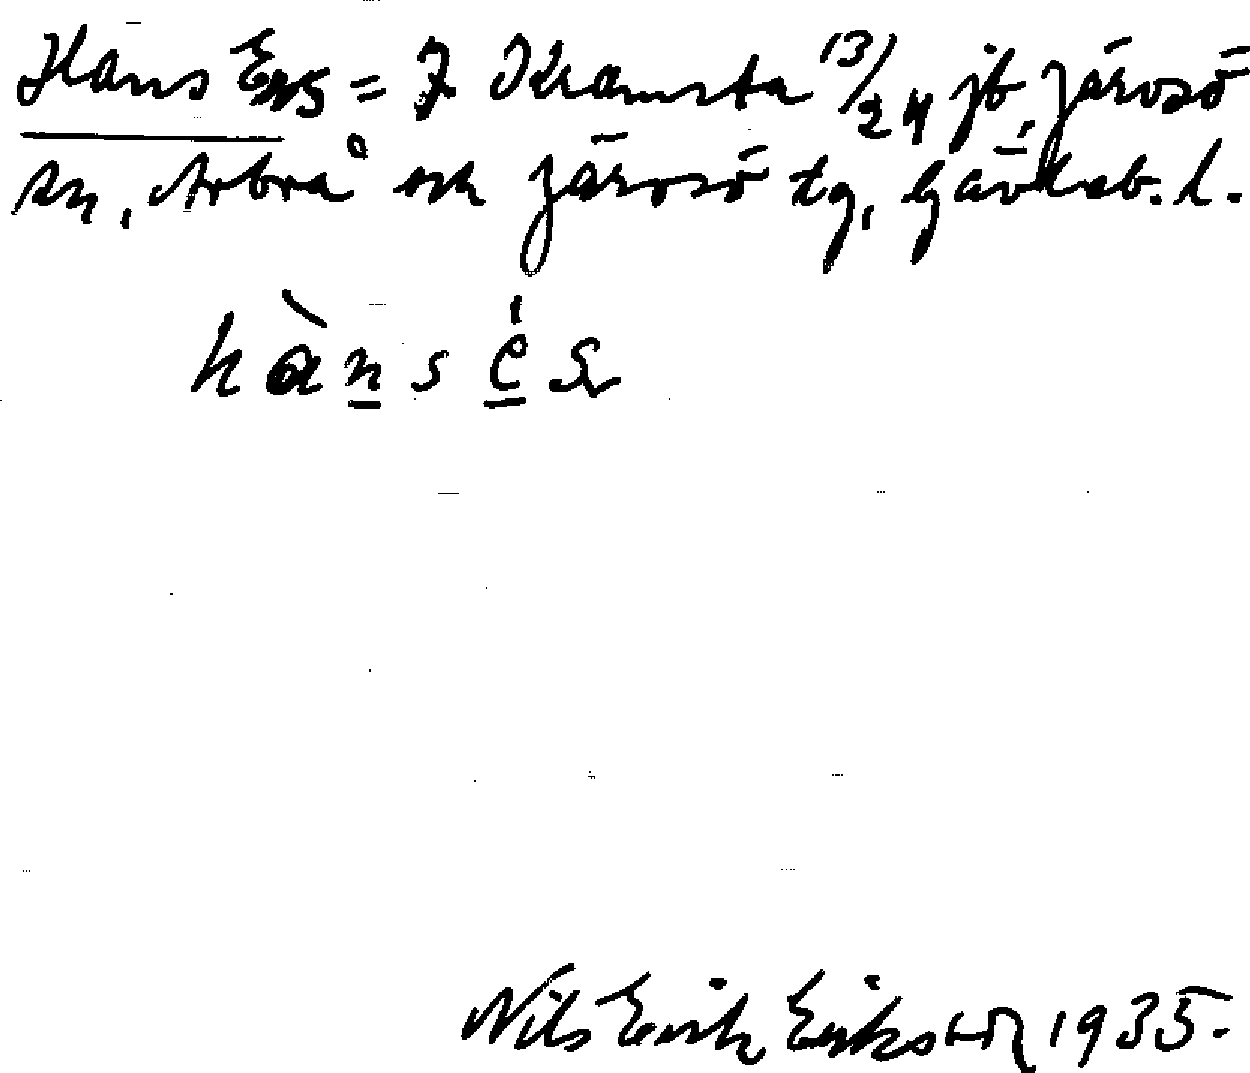 Hans Ers = I Kramsta 13/24 jb, Järvsö
sn, Arbrå och Järvsö tg, Gävleb. l.
hàn s é s
Nils Erik Eriksson 1935.